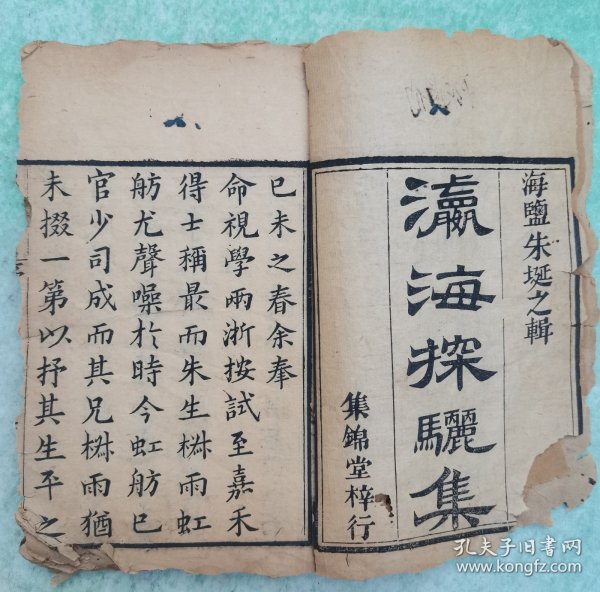 海鹽朱埏之輯
瀛海探驪集
集錦堂梓行
已未之春余奉
命視學兩浙按試至嘉禾
得士稱最而朱生椕雨虹
舫尤聲噪於時今虹舫已
官少司成而其兄椕雨猶
未掇一第以抒其生平之
孔夫子旧書网
www.kongfz.com